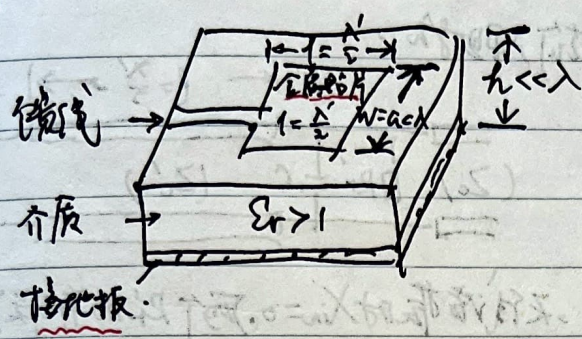 l = λ'/2
金属贴片
l = λ'/2
W = a < λ
h << λ
馈线
介质
εr > 1
接地板.